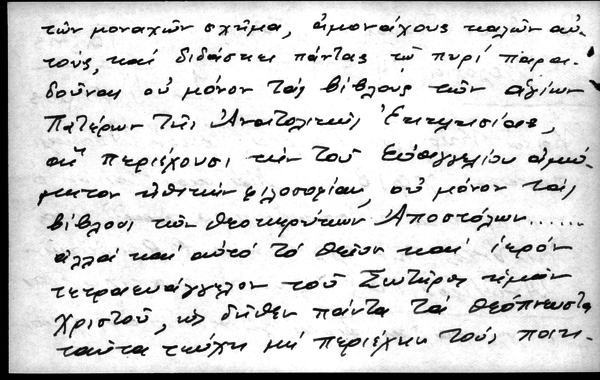 τῶν μοναχῶν σχῆμα, ἀμονάχους καλῶν αὐ-
τούς, καί διδάσκει πάντας τῷ πυρί παρα-
δοῦναι οὐ μόνον τάς βίβλους τῶν ἁγίων
Πατέρων τῆς Ἀνατολικῆς Ἐκκλησίας,
αἵ περιέχουσι τήν τοῦ Εὐαγγελίου ἀμώ-
μητον ἠθικήν φιλοσοφίαν, οὐ μόνον τάς
βίβλους τῶν θεοκηρύκων Ἀποστόλων......
ἀλλά καί αὐτό τό θεῖον καί ἱερόν
τετραευάγγελον τοῦ Σωτῆρος ἡμῶν
Χριστοῦ, ὡς δῆθεν πάντα τά θεόπνευστα
ταῦτα τεύχη μή περιέχειν τούς πατι-